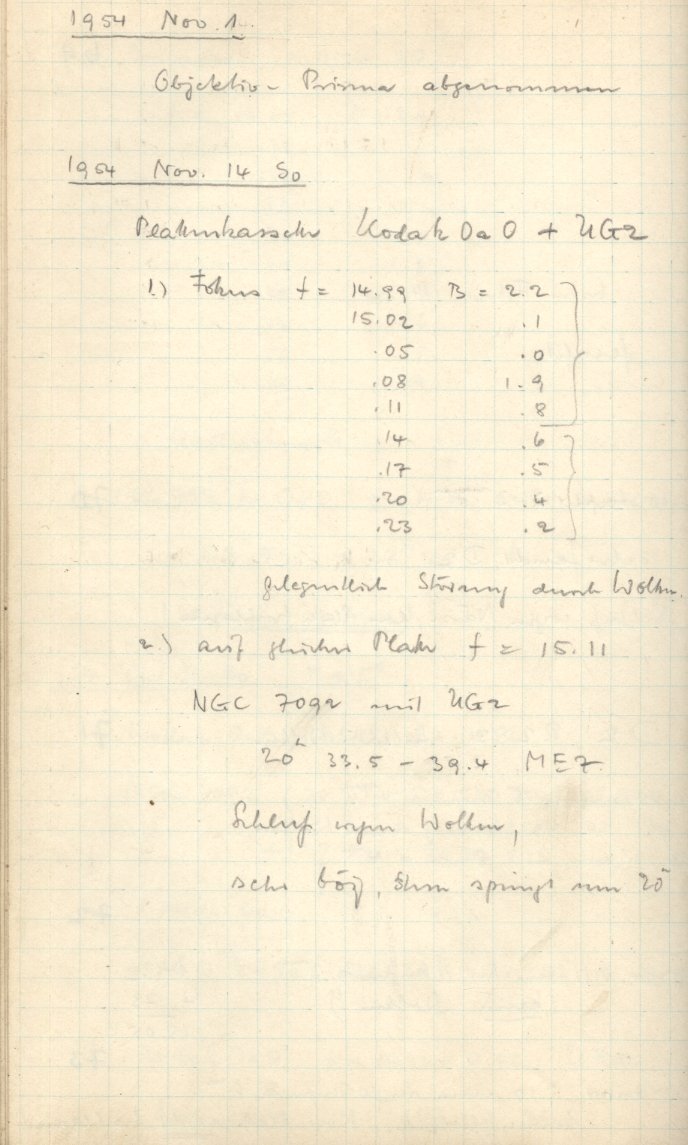 1954 Nov. 1.
Objektiv-Prisma abgenommen
1954 Nov. 14 So
Plattenkassette Kodak OaO + UG2
1.) Fokus f = 14.99 B = 2.2
15.02 .1
.05 .0
.08 1.9
.11 .8
.14 .6
.17 .5
.20 .4
.23 .2
gelegentlich Störung durch Wolken.
2.) auf gleicher Platte f = 15.11
NGC 7092 mit UG2
20h 33.5 - 39.4 MEZ
Schluß wegen Wolken,
sehr böig, Stern springt um 20"